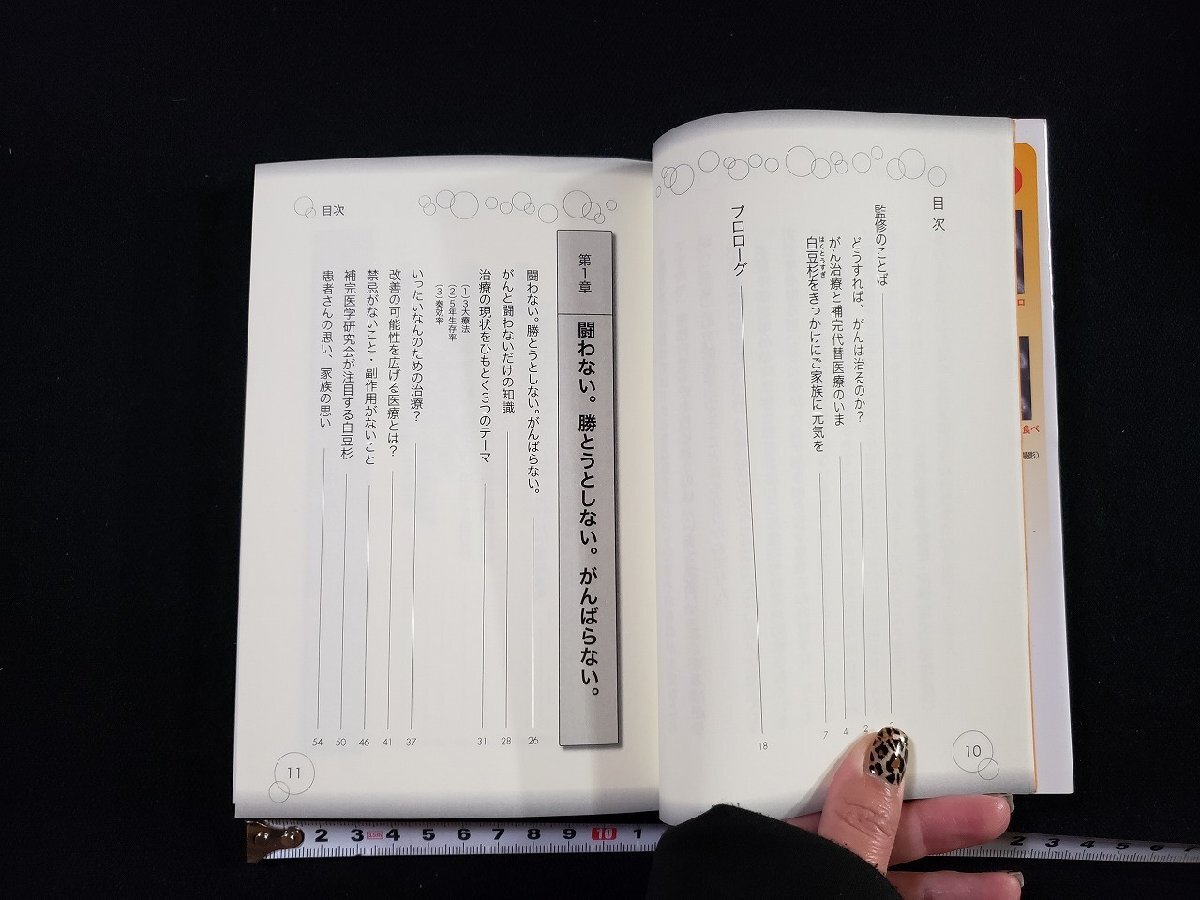 目次
監修のことば
どうすれば、がんは治るのか？ 2
がん治療と補完代替医療のいま 4
白豆杉をきっかけにご家族に元気を 7
はくとうすぎ
プロローグ 18
10
目次
第1章 闘わない。勝とうとしない。がんばらない。
闘わない。勝とうとしない。がんばらない。 26
がんと闘わないだけの知識 28
治療の現状をひもとく3つのテーマ 31
(1)3大療法
(2)5年生存率
(3)奏効率
いったいなんのための治療？ 37
改善の可能性を広げる医療とは？ 41
禁忌がないこと・副作用がないこと 46
補完医学研究会が注目する白豆杉 50
患者さんの思い、家族の思い 54
11
食べ
2 3 4 5 6 7 8 9 10 1
2 3 4 5 6 7